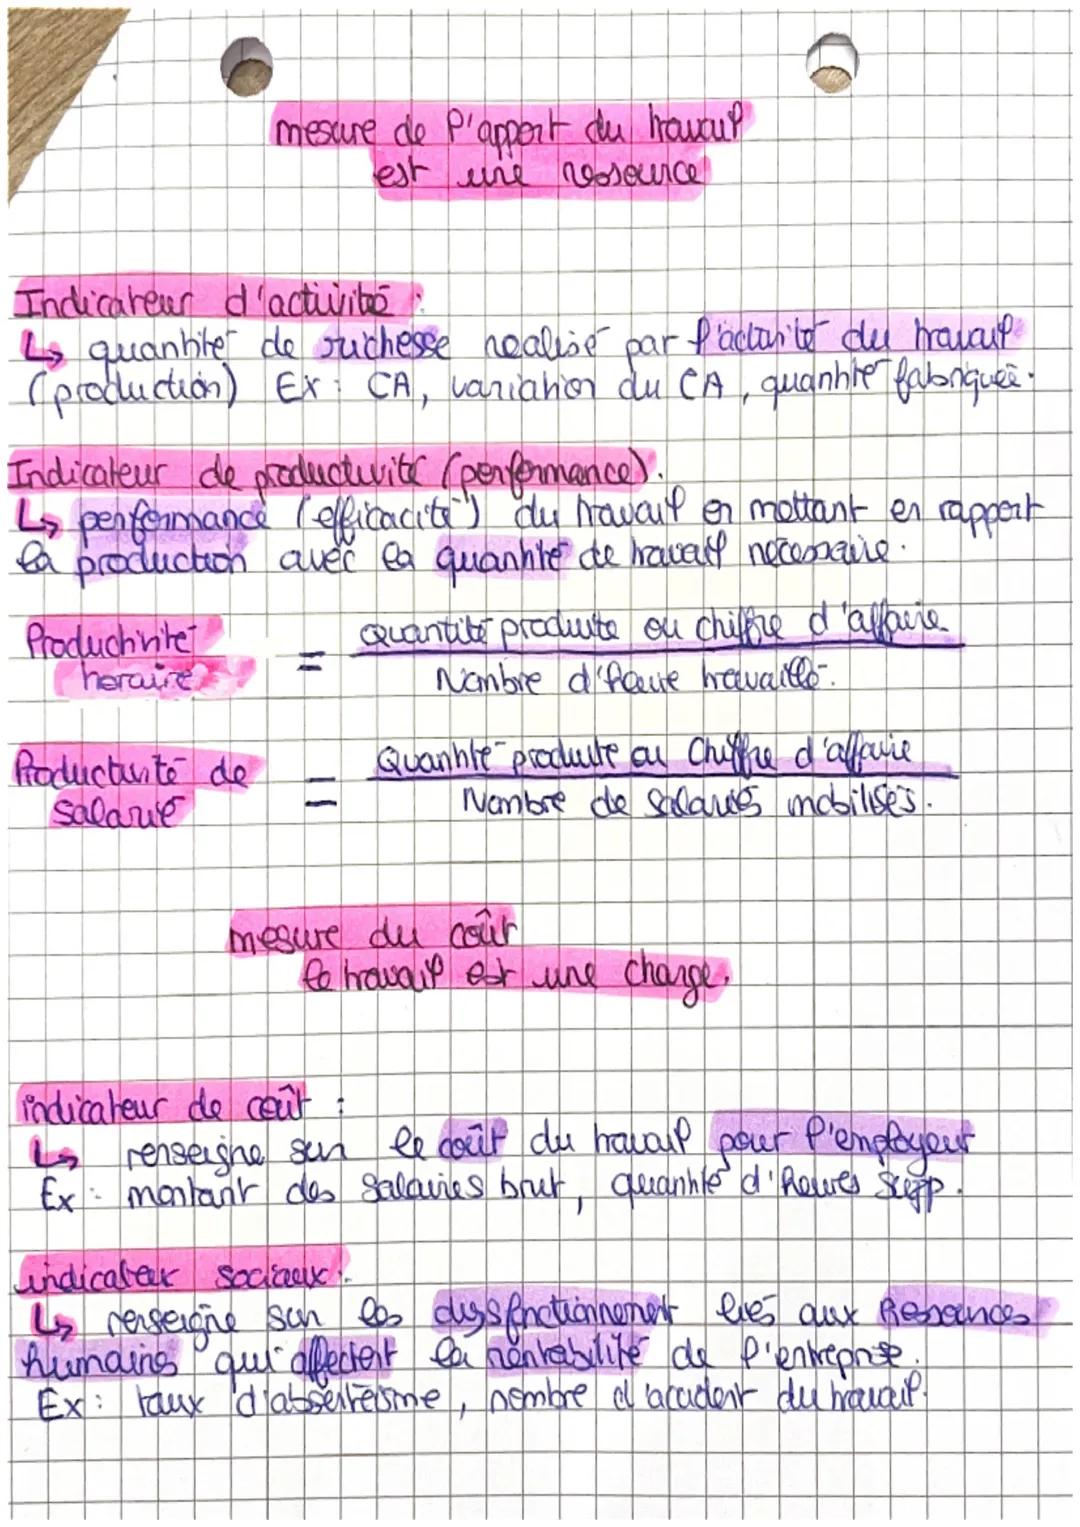 mesure de l'apport du travail
est une ressource
Indicateur d'activité :
↳ quantité de richesse realisé par l'activité du travail
(production) Ex : CA, variation du CA, quantité fabriquée.
Indicateur de productivité (performance).
↳ performance (efficacité) du travail en mettant en rapport
la production avec la quantité de travail nécessaire.
Productivité
horaire
= Quantité produite ou chiffre d'affaire
Nombre d'heure travaillé.
Productivité de
salarié
= Quantité produite ou Chiffre d'affaire
Nombre de salariés mobilisés.
mesure du coût
le travail est une charge.
indicateur de coût :
↳ renseigne sur le coût du travail pour l'employeur
Ex : montant des salaires brut, quantité d'heures supp.
indicateur sociaux.
↳ renseigne sur les dysfnctionnement liés aux Ressources
humains qui affectent la rentabilité de l'entreprise.
Ex : taux d'absentéisme, nombre d'accident du travail.